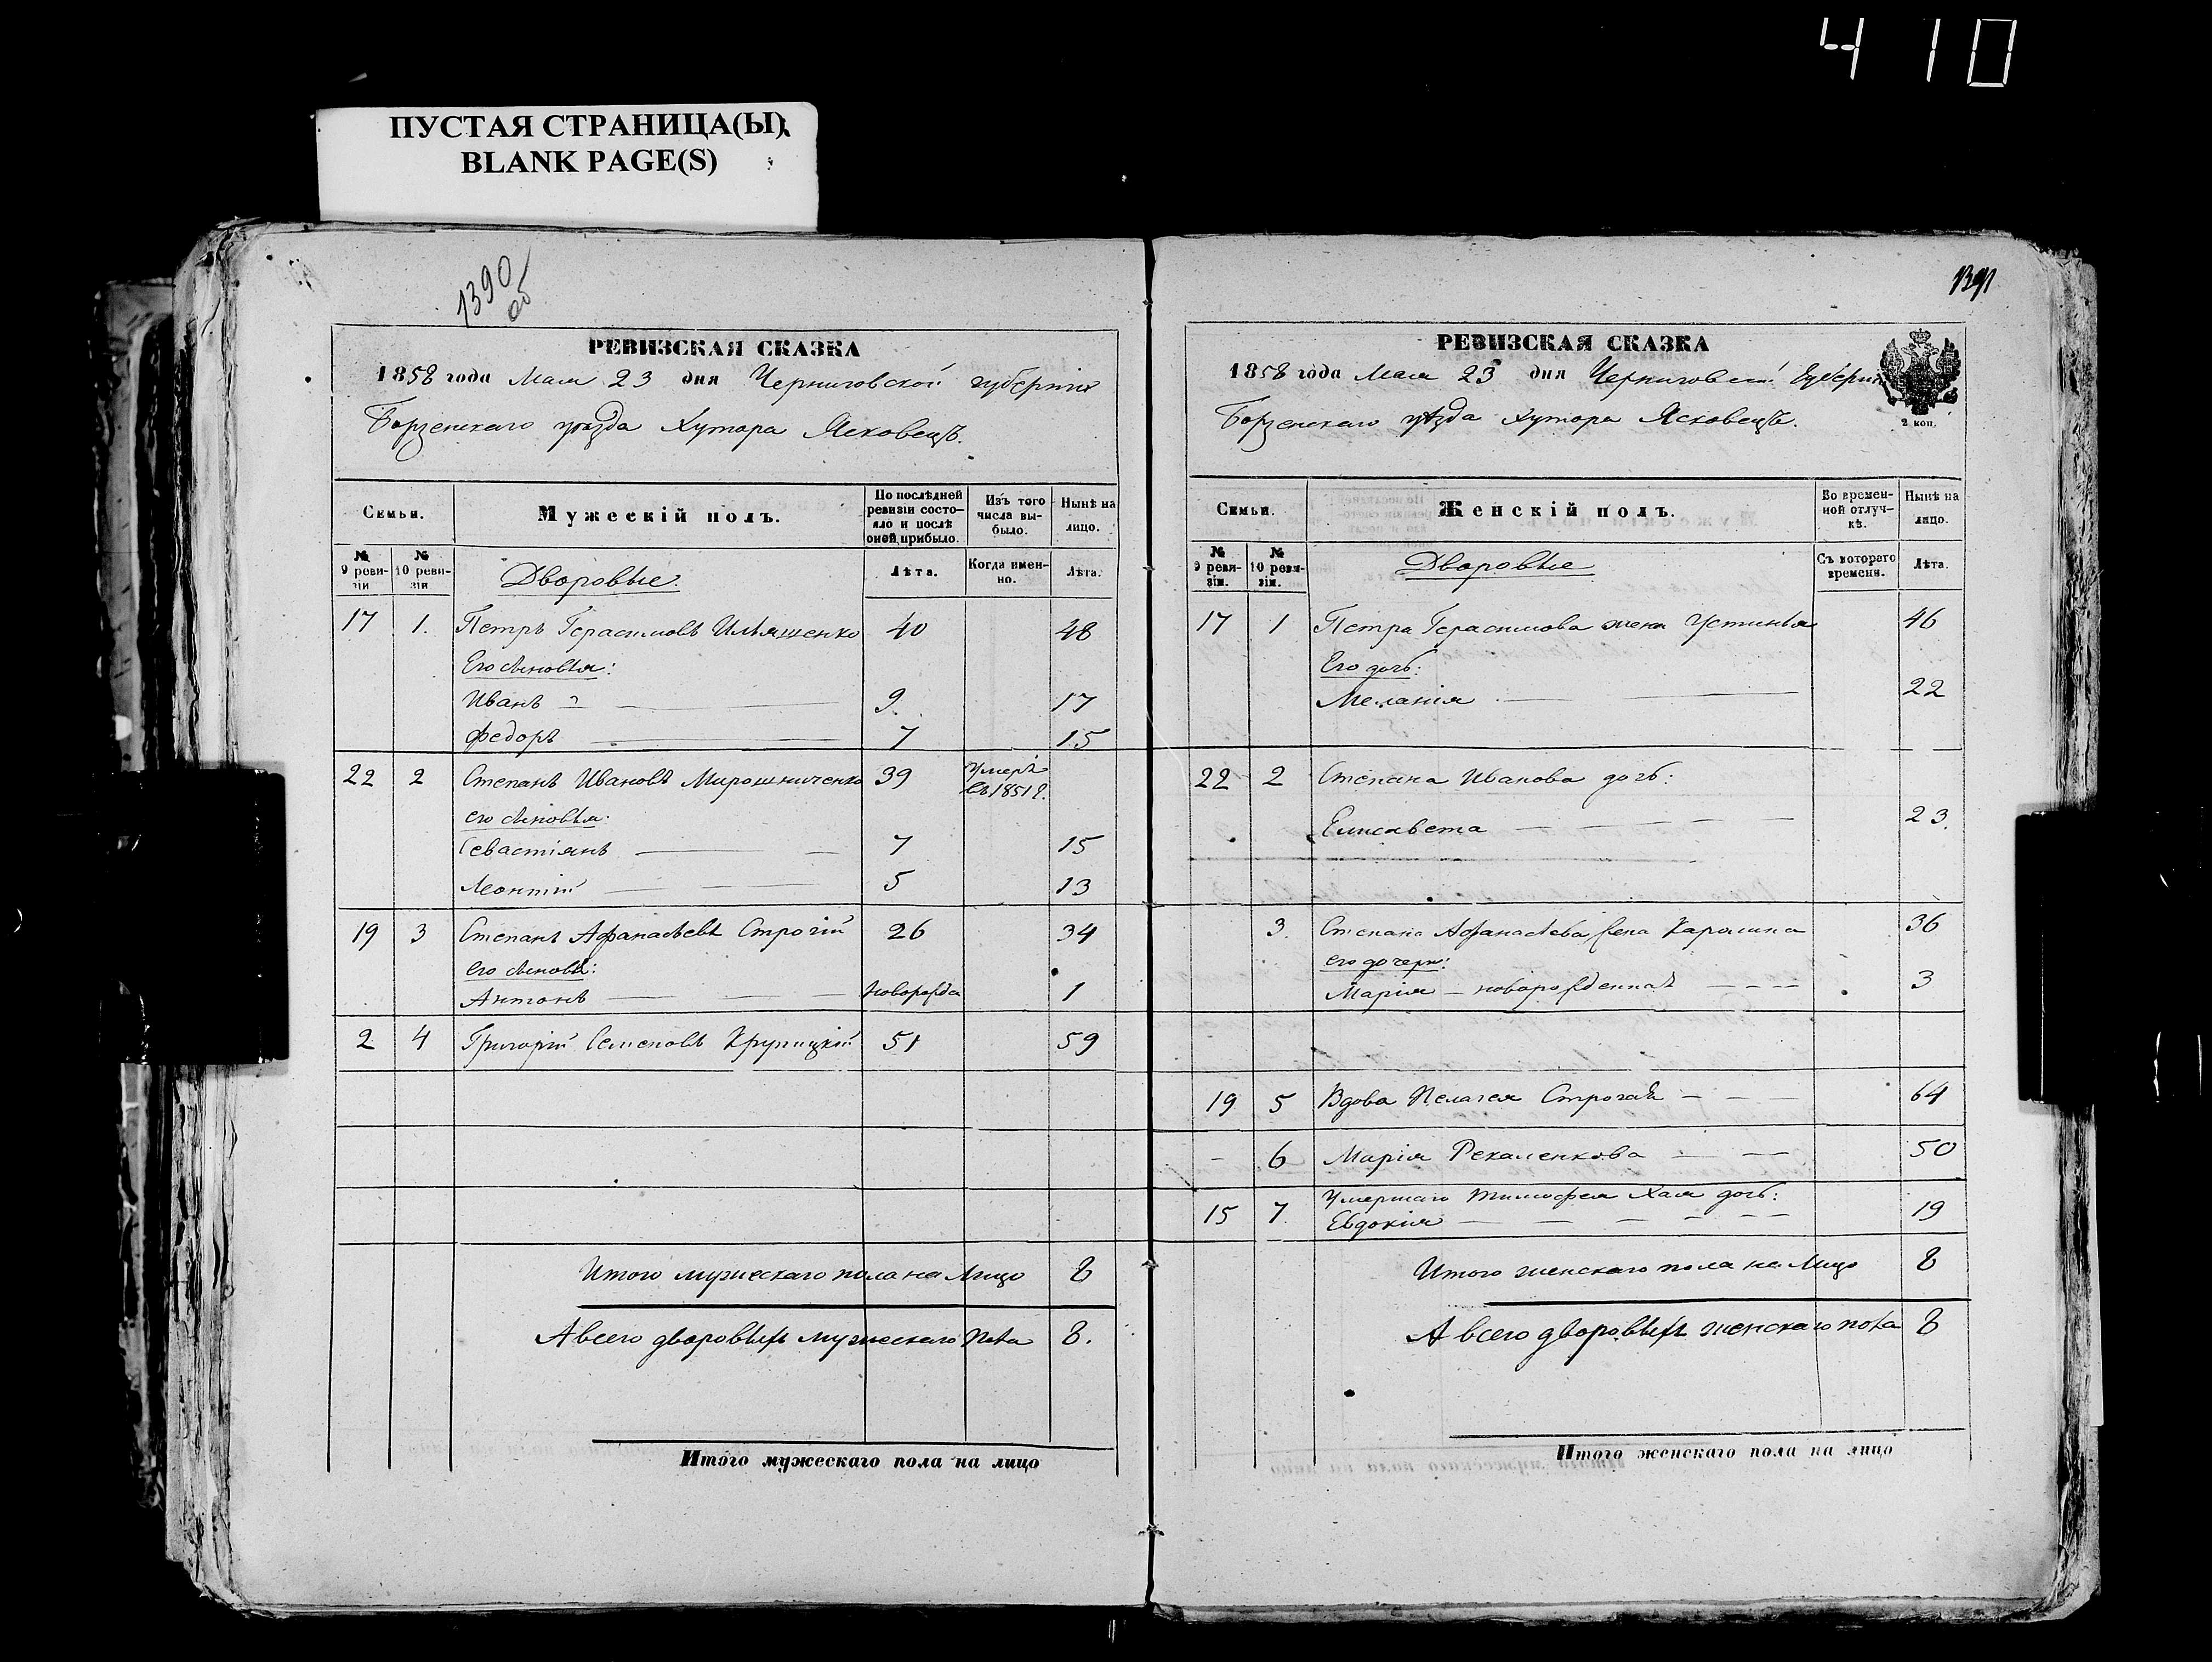 4 10
ПУСТАЯ СТРАНИЦА(Ы)
BLANK PAGE(S)
1390
об
РЕВИЗСКАЯ СКАЗКА
1858 года Мая 23 дня Черниговской губернии
Борзенскаго уѣзда Хутора Ясковецъ.
Семьи. Мужескій полъ. По послѣдней ревизіи состояло и послѣ оной прибыло. Изъ того числа выбыло. Нынѣ на лицо.
№ 9 ревизіи № 10 ревизіи Дворовые Лѣта. Когда именно. Лѣта.
17 1. Петръ Герасимовъ Ильяшенко 40 48
Его сыновья:
Иванъ 9 17
Федоръ 7 15
22 2 Степанъ Ивановъ Мирошниченко 39 Умеръ въ 1851 г.
его сыновья:
Севастіянъ 7 15
Леонтій 5 13
19 3 Степанъ Афанасьевъ Строгій 26 34
его сыновъ:
Антонъ новорожд 1
2 4 Григорій Семеновъ Крупицкій 51 59
Итого мужескаго пола на лицо 8
А всего дворовыхъ мужескаго пола 8.
Итого мужескаго пола на лицо
1391
РЕВИЗСКАЯ СКАЗКА
1858 года Мая 23 дня Черниговской Губерніи
Борзенскаго уѣзда хутора Ясковецъ.
2 коп.
Семьи. Женскій полъ. Во временной отлучкѣ. Нынѣ на лицо.
№ 9 ревизіи. № 10 ревизіи. Дворовые Съ котораго времени. Лѣта.
17 1 Петра Герасимова жена Устинья 46
Его дочь:
Меланія 22
22 2 Степана Иванова дочь:
Елисавета 23.
3. Степана Афанасьева жена Каролина 36
его дочери:
Марія – новорожденная 3
19 5 Вдова Пелагея Строгая 64
- 6 Марія Рекаленкова 50
15 7. Умершаго Тимофея Хая дочь:
Евдокія 19
Итого женскаго пола на лицо 8
А всего дворовыхъ женскаго пола 8
Итого женскаго пола на лицо